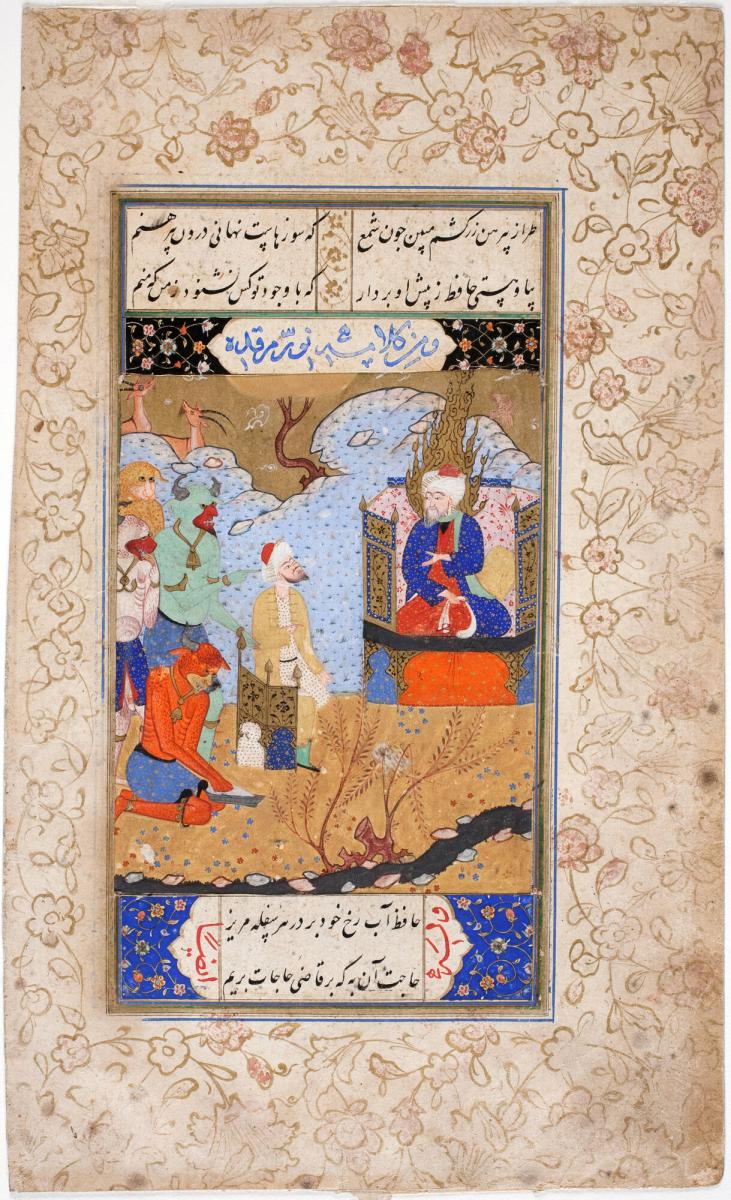 طراز پیرهن زرکشم مبین جون شمع که سوزهاست نهانی درون پیرهنم
بیا و هستی حافظ ز پیش او بردار که با وجود تو کس نشنود ز من که منم
و من کلام شریف نور مرقده
حافظ آب رخ خود بر در هر سفله مریز
حاجت آن به که بر قاضی حاجات بریم
وله
ایضا